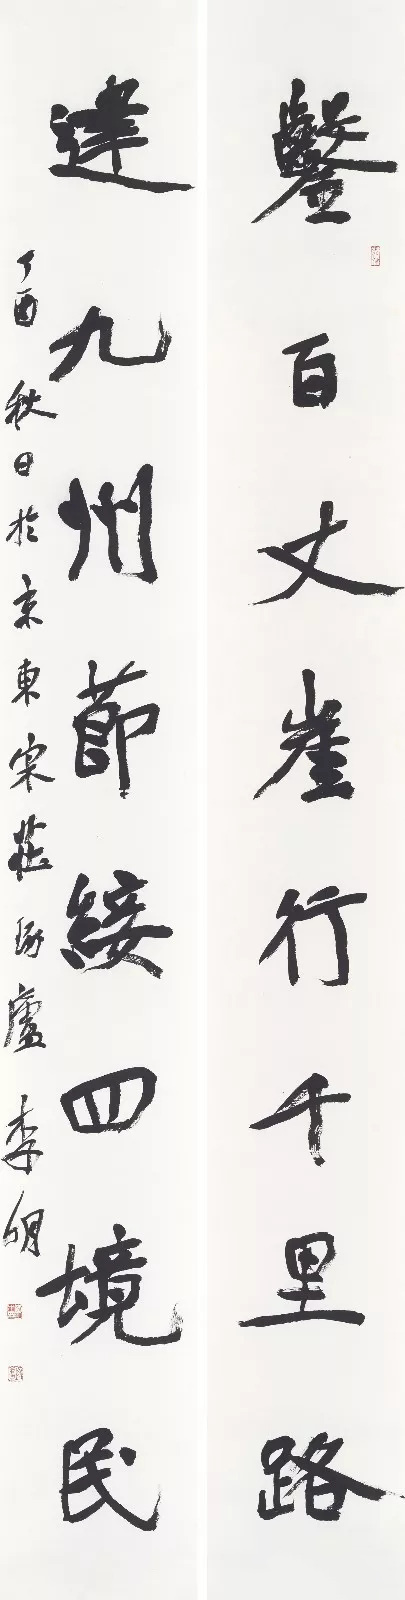 鑿百丈崖行千里路
建九州節綏四境民
丁酉秋日於京東宋莊琢廬李明